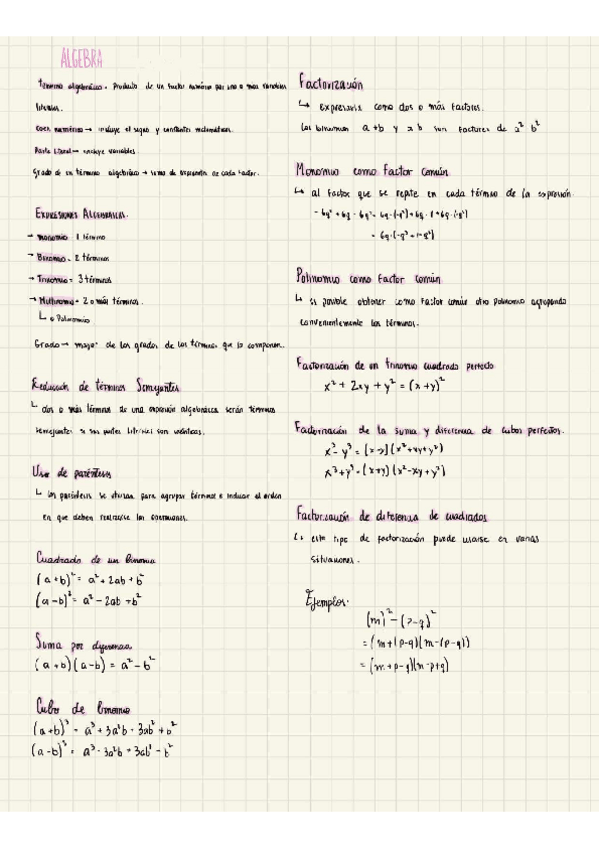 ALGEBRA
término algebraico = Producto de un factor numérico por una o más variables
literales.
Coef. numérico → incluye el signo y constantes matemáticas.
Parte Literal → incluye variables.
Grado de un término algebraico → suma de exponentes de cada factor.
EXPRESIONES ALGEBRAICAS.
→ monomio = 1 término
→ Binomio = 2 términos
→ Trinomio = 3 términos
→ Multinomio = 2 o más términos.
↳ o Polinomio
Grado → mayor de los grados de los términos que lo componen.
Reducción de términos Semejantes
↳ dos o más términos de una expresión algebraica serán términos
semejantes si sus partes literales son idénticas.
Uso de paréntesis
↳ los paréntesis se utilizan para agrupar términos e indicar el orden
en que deben realizarse las operaciones.
Cuadrado de un binomio
(a+b)² = a² + 2ab + b²
(a-b)² = a² - 2ab + b²
Suma por diferencia
(a+b)(a-b) = a² - b²
Cubo de binomio
(a+b)³ = a³ + 3a²b + 3ab² + b³
(a-b)³ = a³ - 3a²b + 3ab² - b³
Factorización
↳ expresarla como dos o más factores.
Los binomios a+b y a b son factores de a² b²
Monomio como factor común
↳ al factor que se repite en cada término de la expresión.
Polinomio como factor común
↳ es posible obtener como factor común otro polinomio agrupando
convenientemente los términos.
Factorización de un trinomio cuadrado perfecto
x² + 2xy + y² = (x+y)²
Factorización de la suma y diferencia de cubos perfectos.
x³ - y³ = (x-y)(x²+xy+y²)
x³ + y³ = (x+y)(x²-xy+y²)
Factorización de diferencia de cuadrados
↳ este tipo de factorización puede usarse en varias
situaciones.
Ejemplos:
(m)² - (p-q)²
= (m+(p-q))(m-(p-q))
= (m+p-q)(m-p+q)